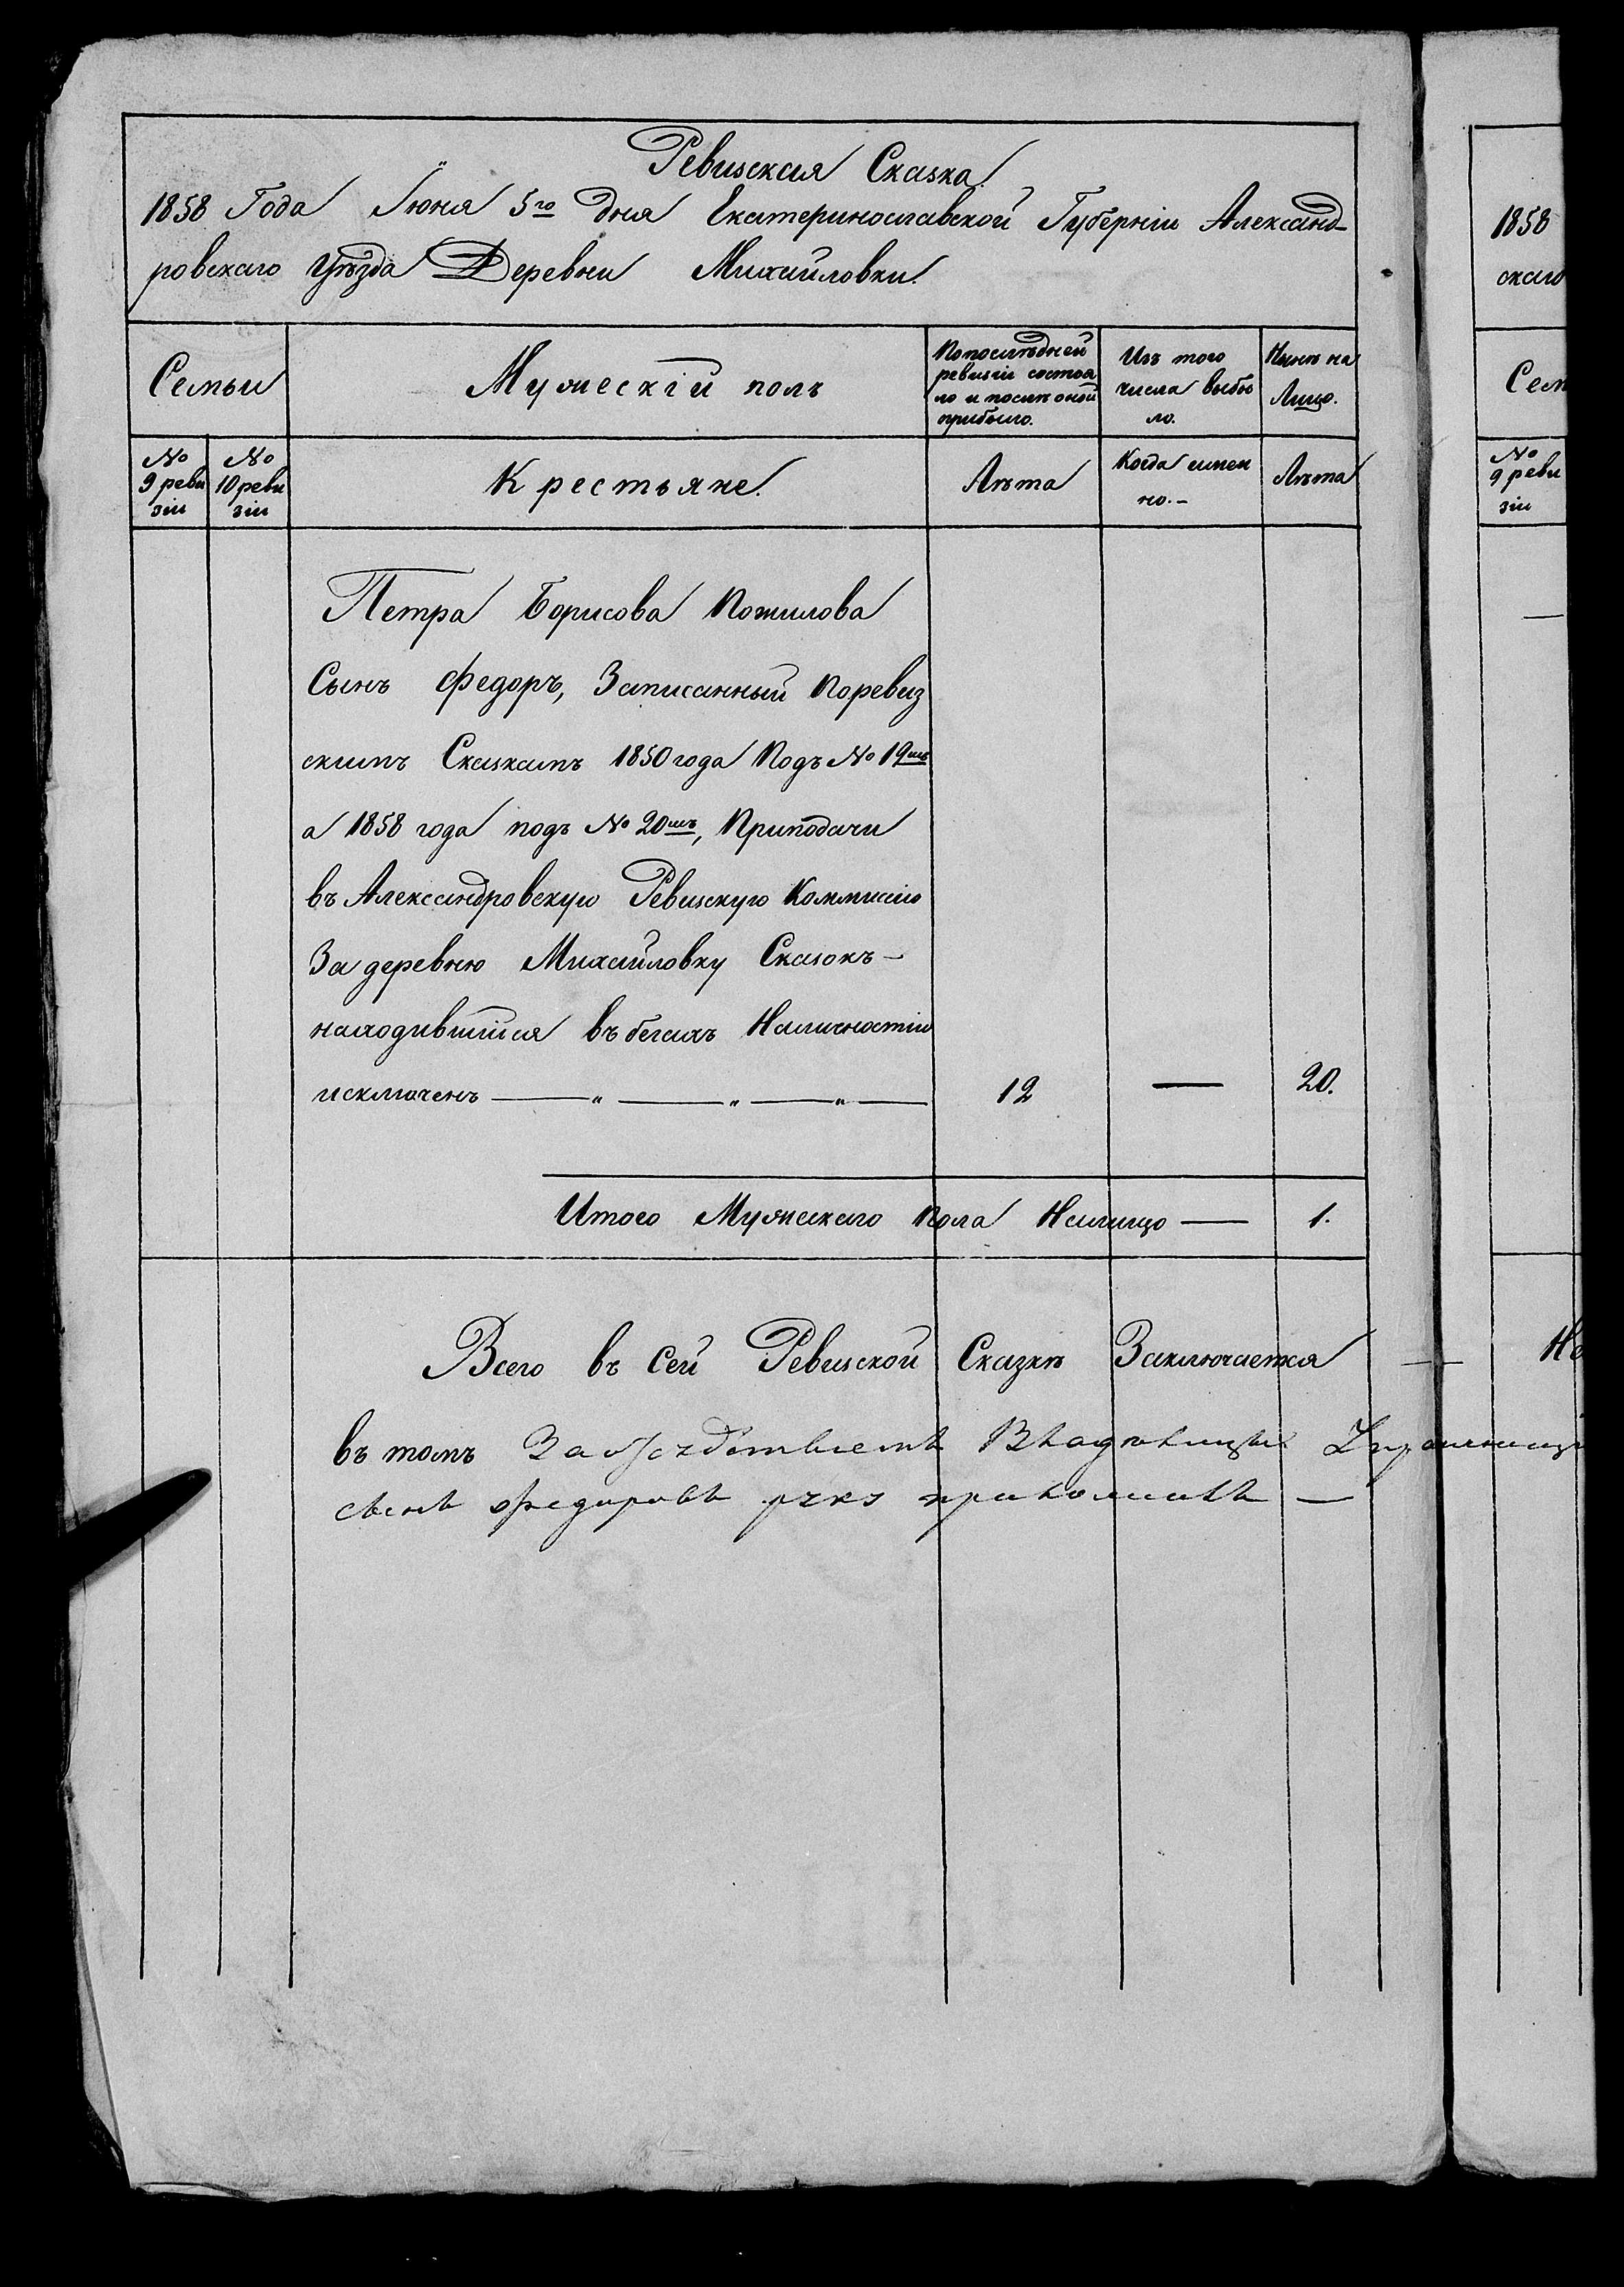 Ревизская Сказка.
1858 Года Іюня 5го дня Екатеринославской Губерніи Александ-
ровскаго уѣзда Деревни Михайловки.
Семьи
Мужескій полъ
По послѣдней
ревизіи состоя
ло и послѣ оной
прибыло.
Изъ того
числа выбы
ло.
Нынѣ на
Лицо.
№
9 реви
зіи
№
10 реви
зіи
Крестьяне.
Лѣта
Когда имен
но.-
Лѣта
Петра Борисова Пожилова
Сынъ Федоръ, Записанный поревиз
скимъ Сказкамъ 1850 года Подъ № 19мъ
а 1858 года подъ № 20мъ, Приподачи
въ Александровскую Ревизскую Коммисію
За деревню Михайловку Сказокъ -
находившійся въ бегахъ Наличностію
исключенъ — „ — „ — „ — 12 — 20.
Итого Мужескаго пола Налицо — 1.
Всего въ Сей Ревизской Сказкѣ Заключается —
въ томъ
сынъ Федоровъ руку приложилъ —
1858
скаго
Сем
№
9 реви
зіи
—
Не